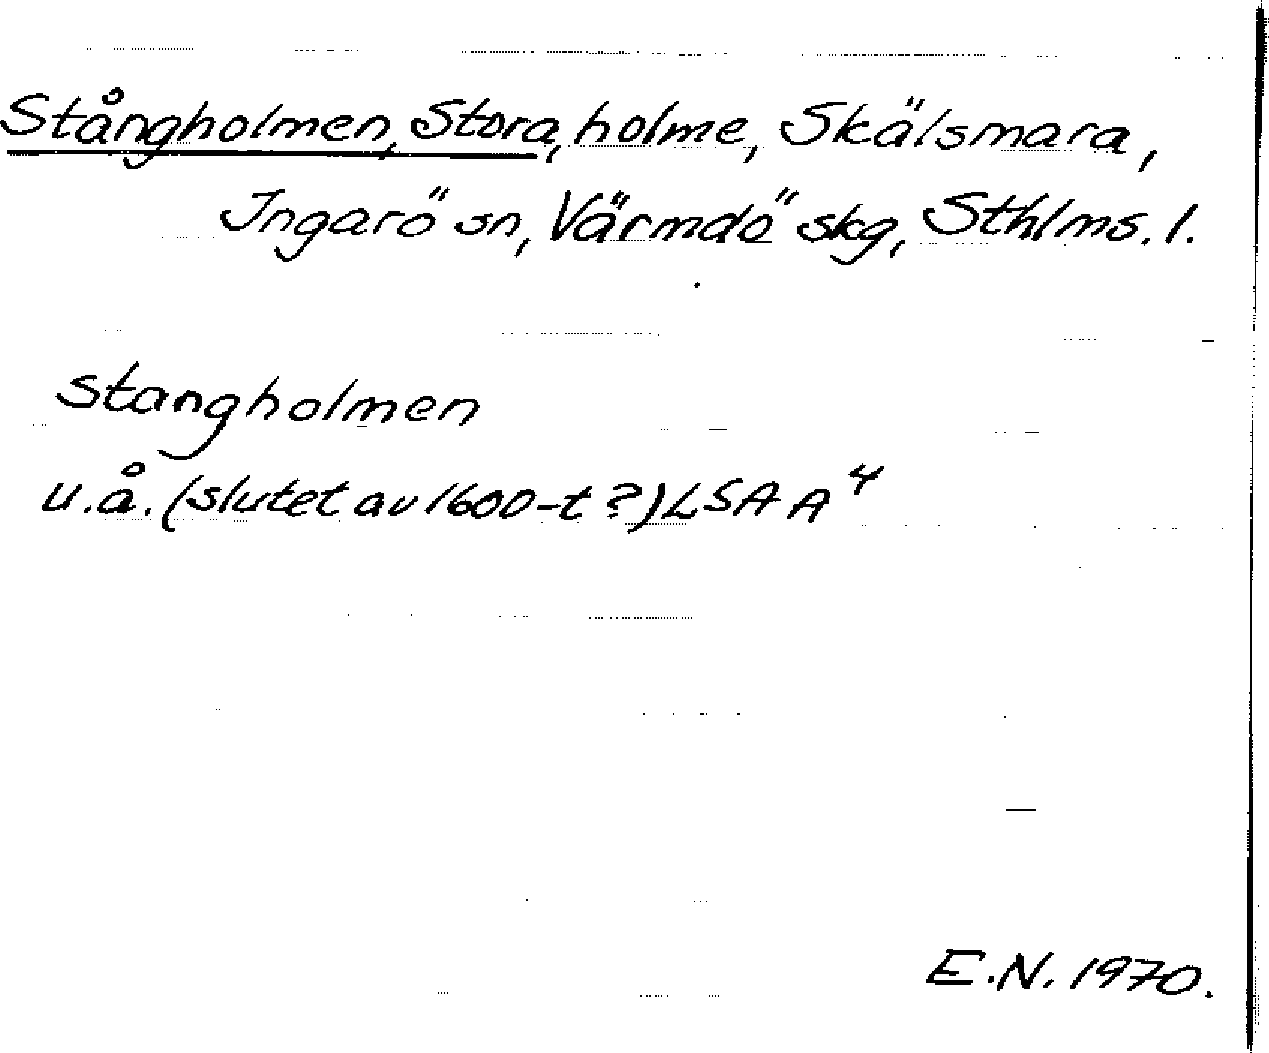 Stångholmen, Stora, holme, Skälsmara,
Ingarö sn, Värmdö skg, Sthlms. l.
stangholmen
u.å. (slutet av 1600-t ?) LSA A⁴
E.N. 1970.